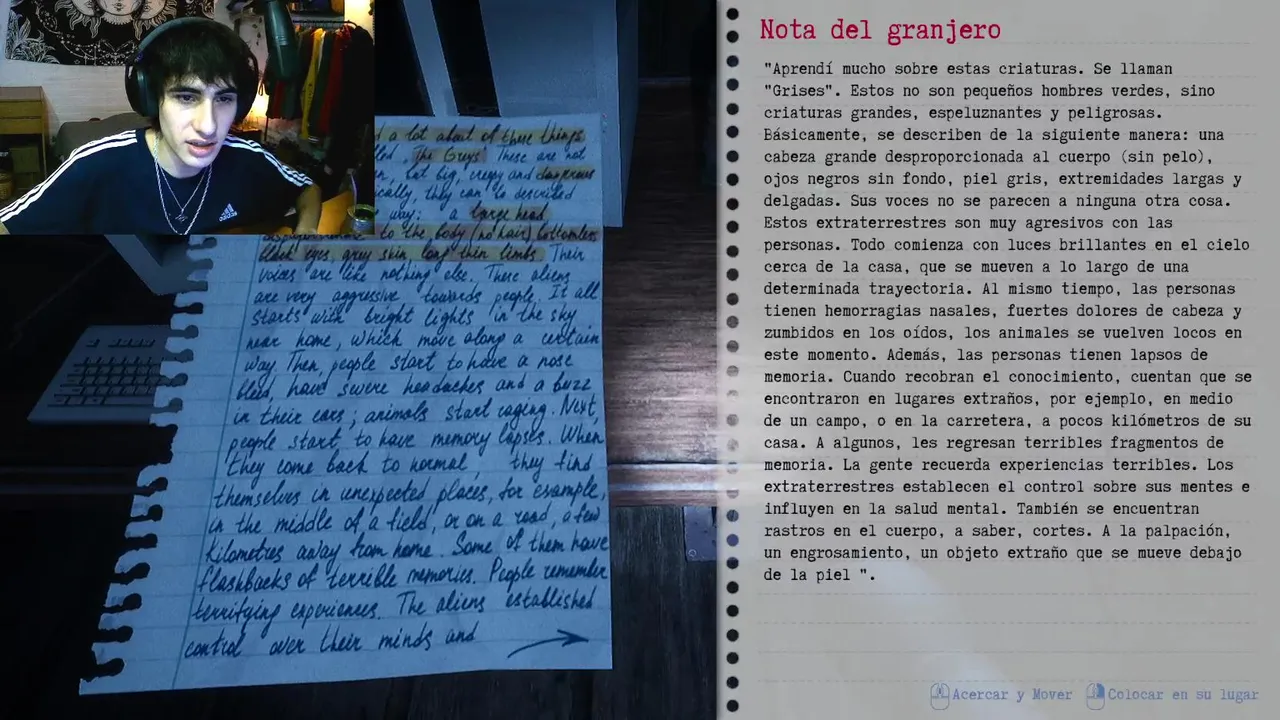 d a lot about of these things
lled "The Greys" These are not
n, but big, creepy and dangerous
ically, they can be described
way: a large head
to the body (no hair) bottomless
black eyes, grey skin long thin limbs Their
voices are like nothing else. These aliens
are very aggressive towards people. It all
starts with bright lights in the sky
near home, which move along a certain
way. Then, people start to have a nose
bleed, have swere headaches and a buzz
in their ears; animals start raging. Next,
people start to have memory lapses. When
they come back to normal, they find
themselves in unexpected places, for example,
in the middle of a field, or on a road, a few
kilometres away from home. Some of them have
flashbacks of terrible memories. People remember
terrifying experiences. The aliens established
control over their minds and
adidas
Nota del granjero
"Aprendí mucho sobre estas criaturas. Se llaman
"Grises". Estos no son pequeños hombres verdes, sino
criaturas grandes, espeluznantes y peligrosas.
Básicamente, se describen de la siguiente manera: una
cabeza grande desproporcionada al cuerpo (sin pelo),
ojos negros sin fondo, piel gris, extremidades largas y
delgadas. Sus voces no se parecen a ninguna otra cosa.
Estos extraterrestres son muy agresivos con las
personas. Todo comienza con luces brillantes en el cielo
cerca de la casa, que se mueven a lo largo de una
determinada trayectoria. Al mismo tiempo, las personas
tienen hemorragias nasales, fuertes dolores de cabeza y
zumbidos en los oídos, los animales se vuelven locos en
este momento. Además, las personas tienen lapsos de
memoria. Cuando recobran el conocimiento, cuentan que se
encontraron en lugares extraños, por ejemplo, en medio
de un campo, o en la carretera, a pocos kilómetros de su
casa. A algunos, les regresan terribles fragmentos de
memoria. La gente recuerda experiencias terribles. Los
extraterrestres establecen el control sobre sus mentes e
influyen en la salud mental. También se encuentran
rastros en el cuerpo, a saber, cortes. A la palpación,
un engrosamiento, un objeto extraño que se mueve debajo
de la piel ".
Acercar y Mover
Colocar en su lugar